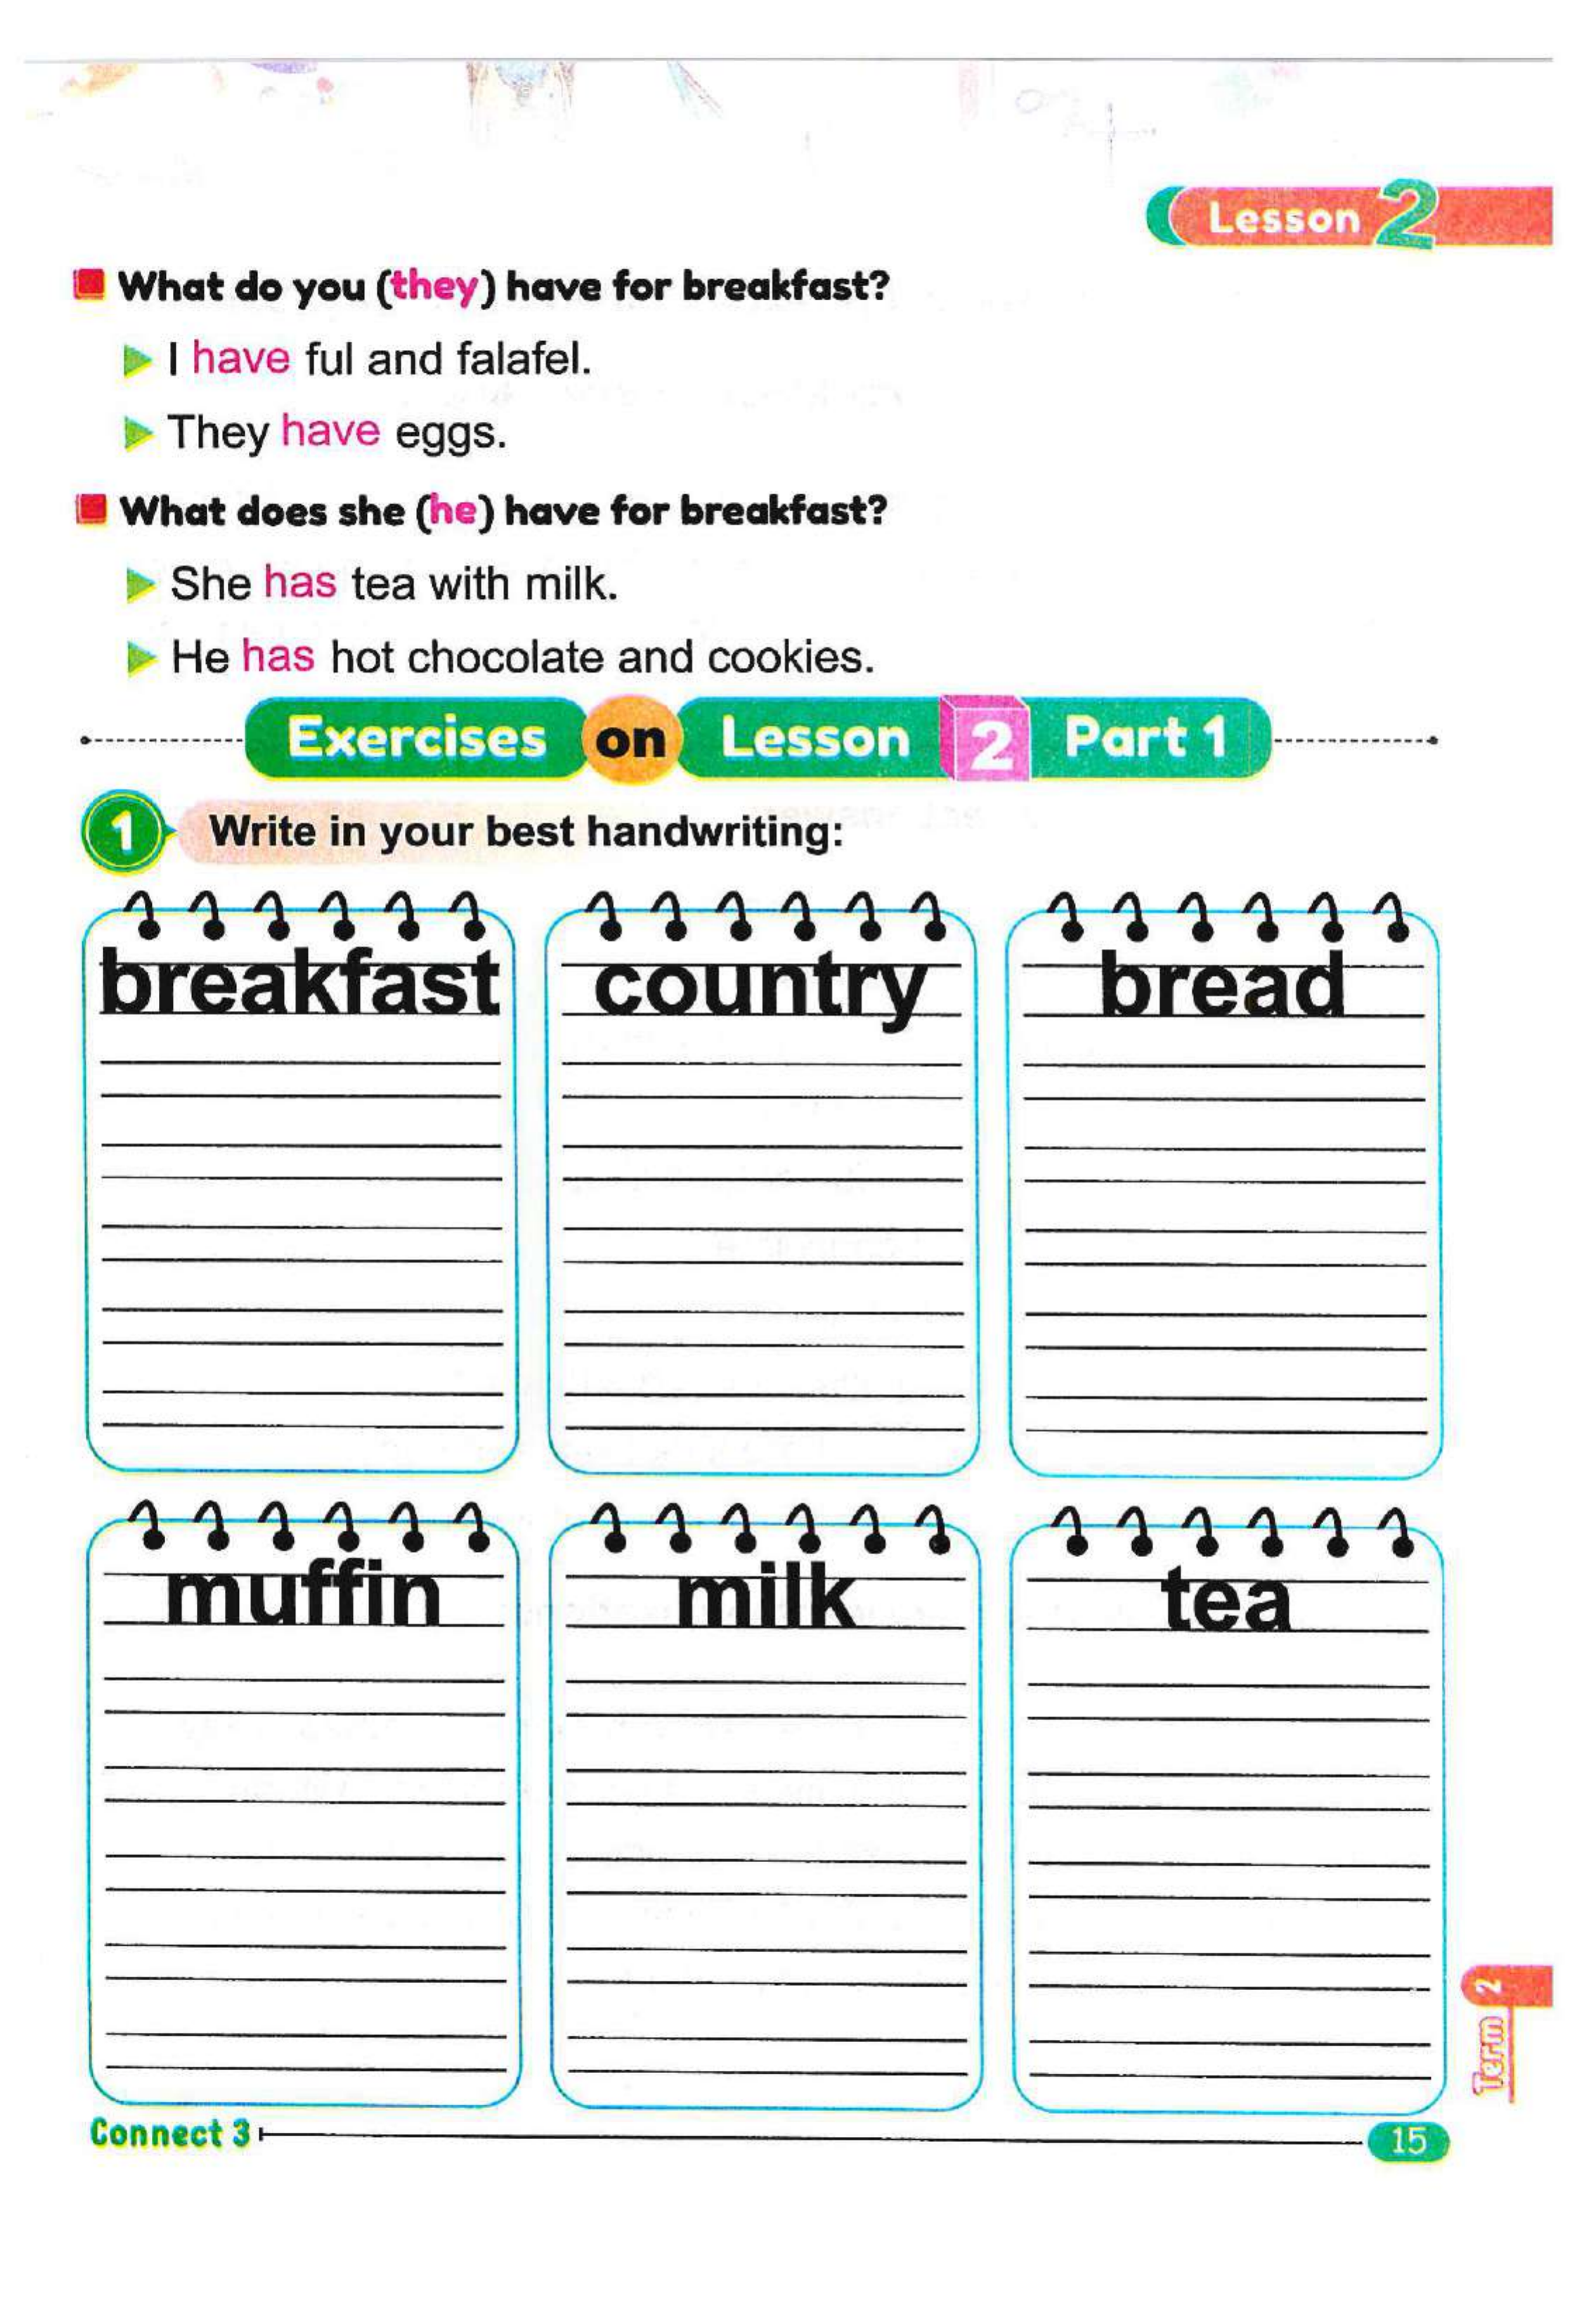 Lesson 2
What do you (they) have for breakfast?
I have ful and falafel.
They have eggs.
What does she (he) have for breakfast?
She has tea with milk.
He has hot chocolate and cookies.
Exercises on Lesson 2 Part 1
1 Write in your best handwriting:
breakfast country bread
muffin milk tea
Term 2
Connect 3 15